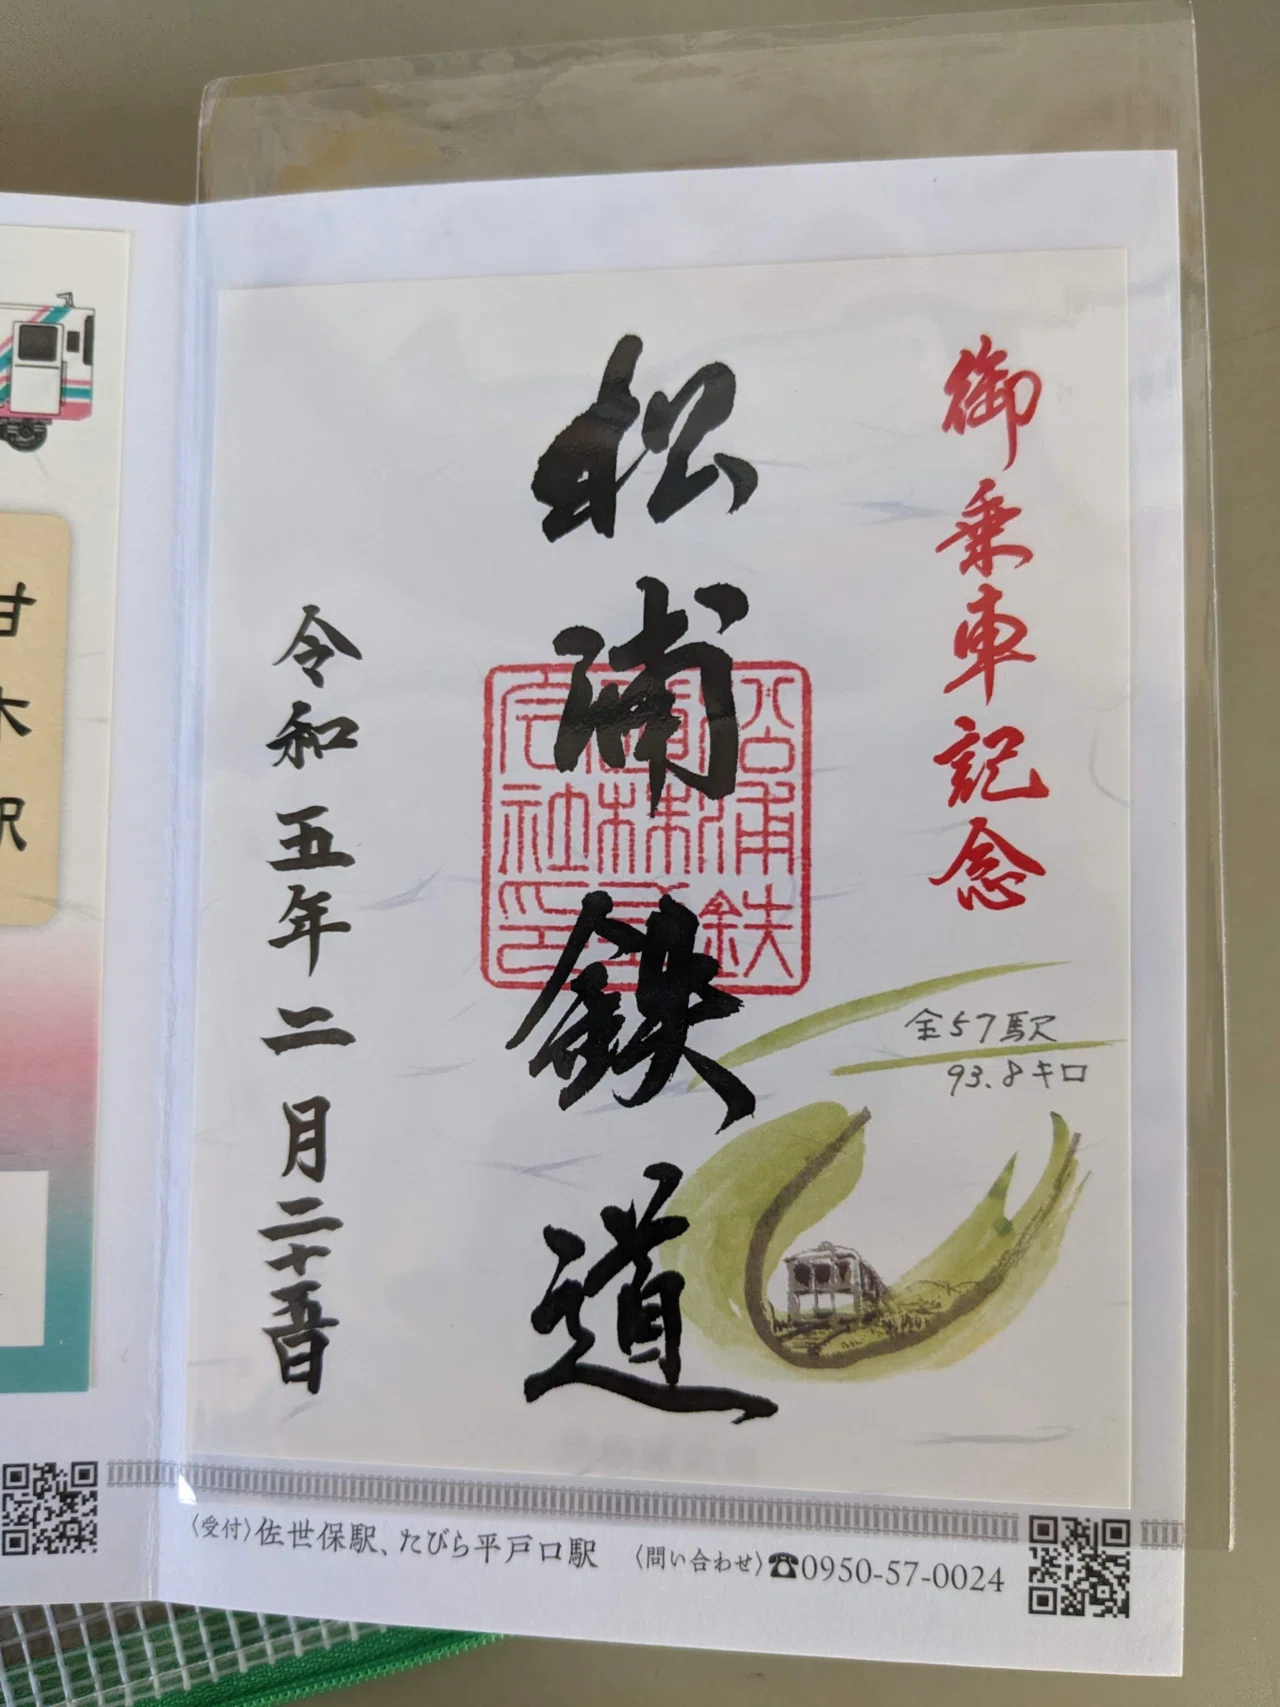 御乗車記念
松浦鉄道
令和五年二月二十五日
全57駅
93.8キロ
甘木駅
〈受付〉佐世保駅、たびら平戸口駅 〈問い合わせ〉☎0950-57-0024